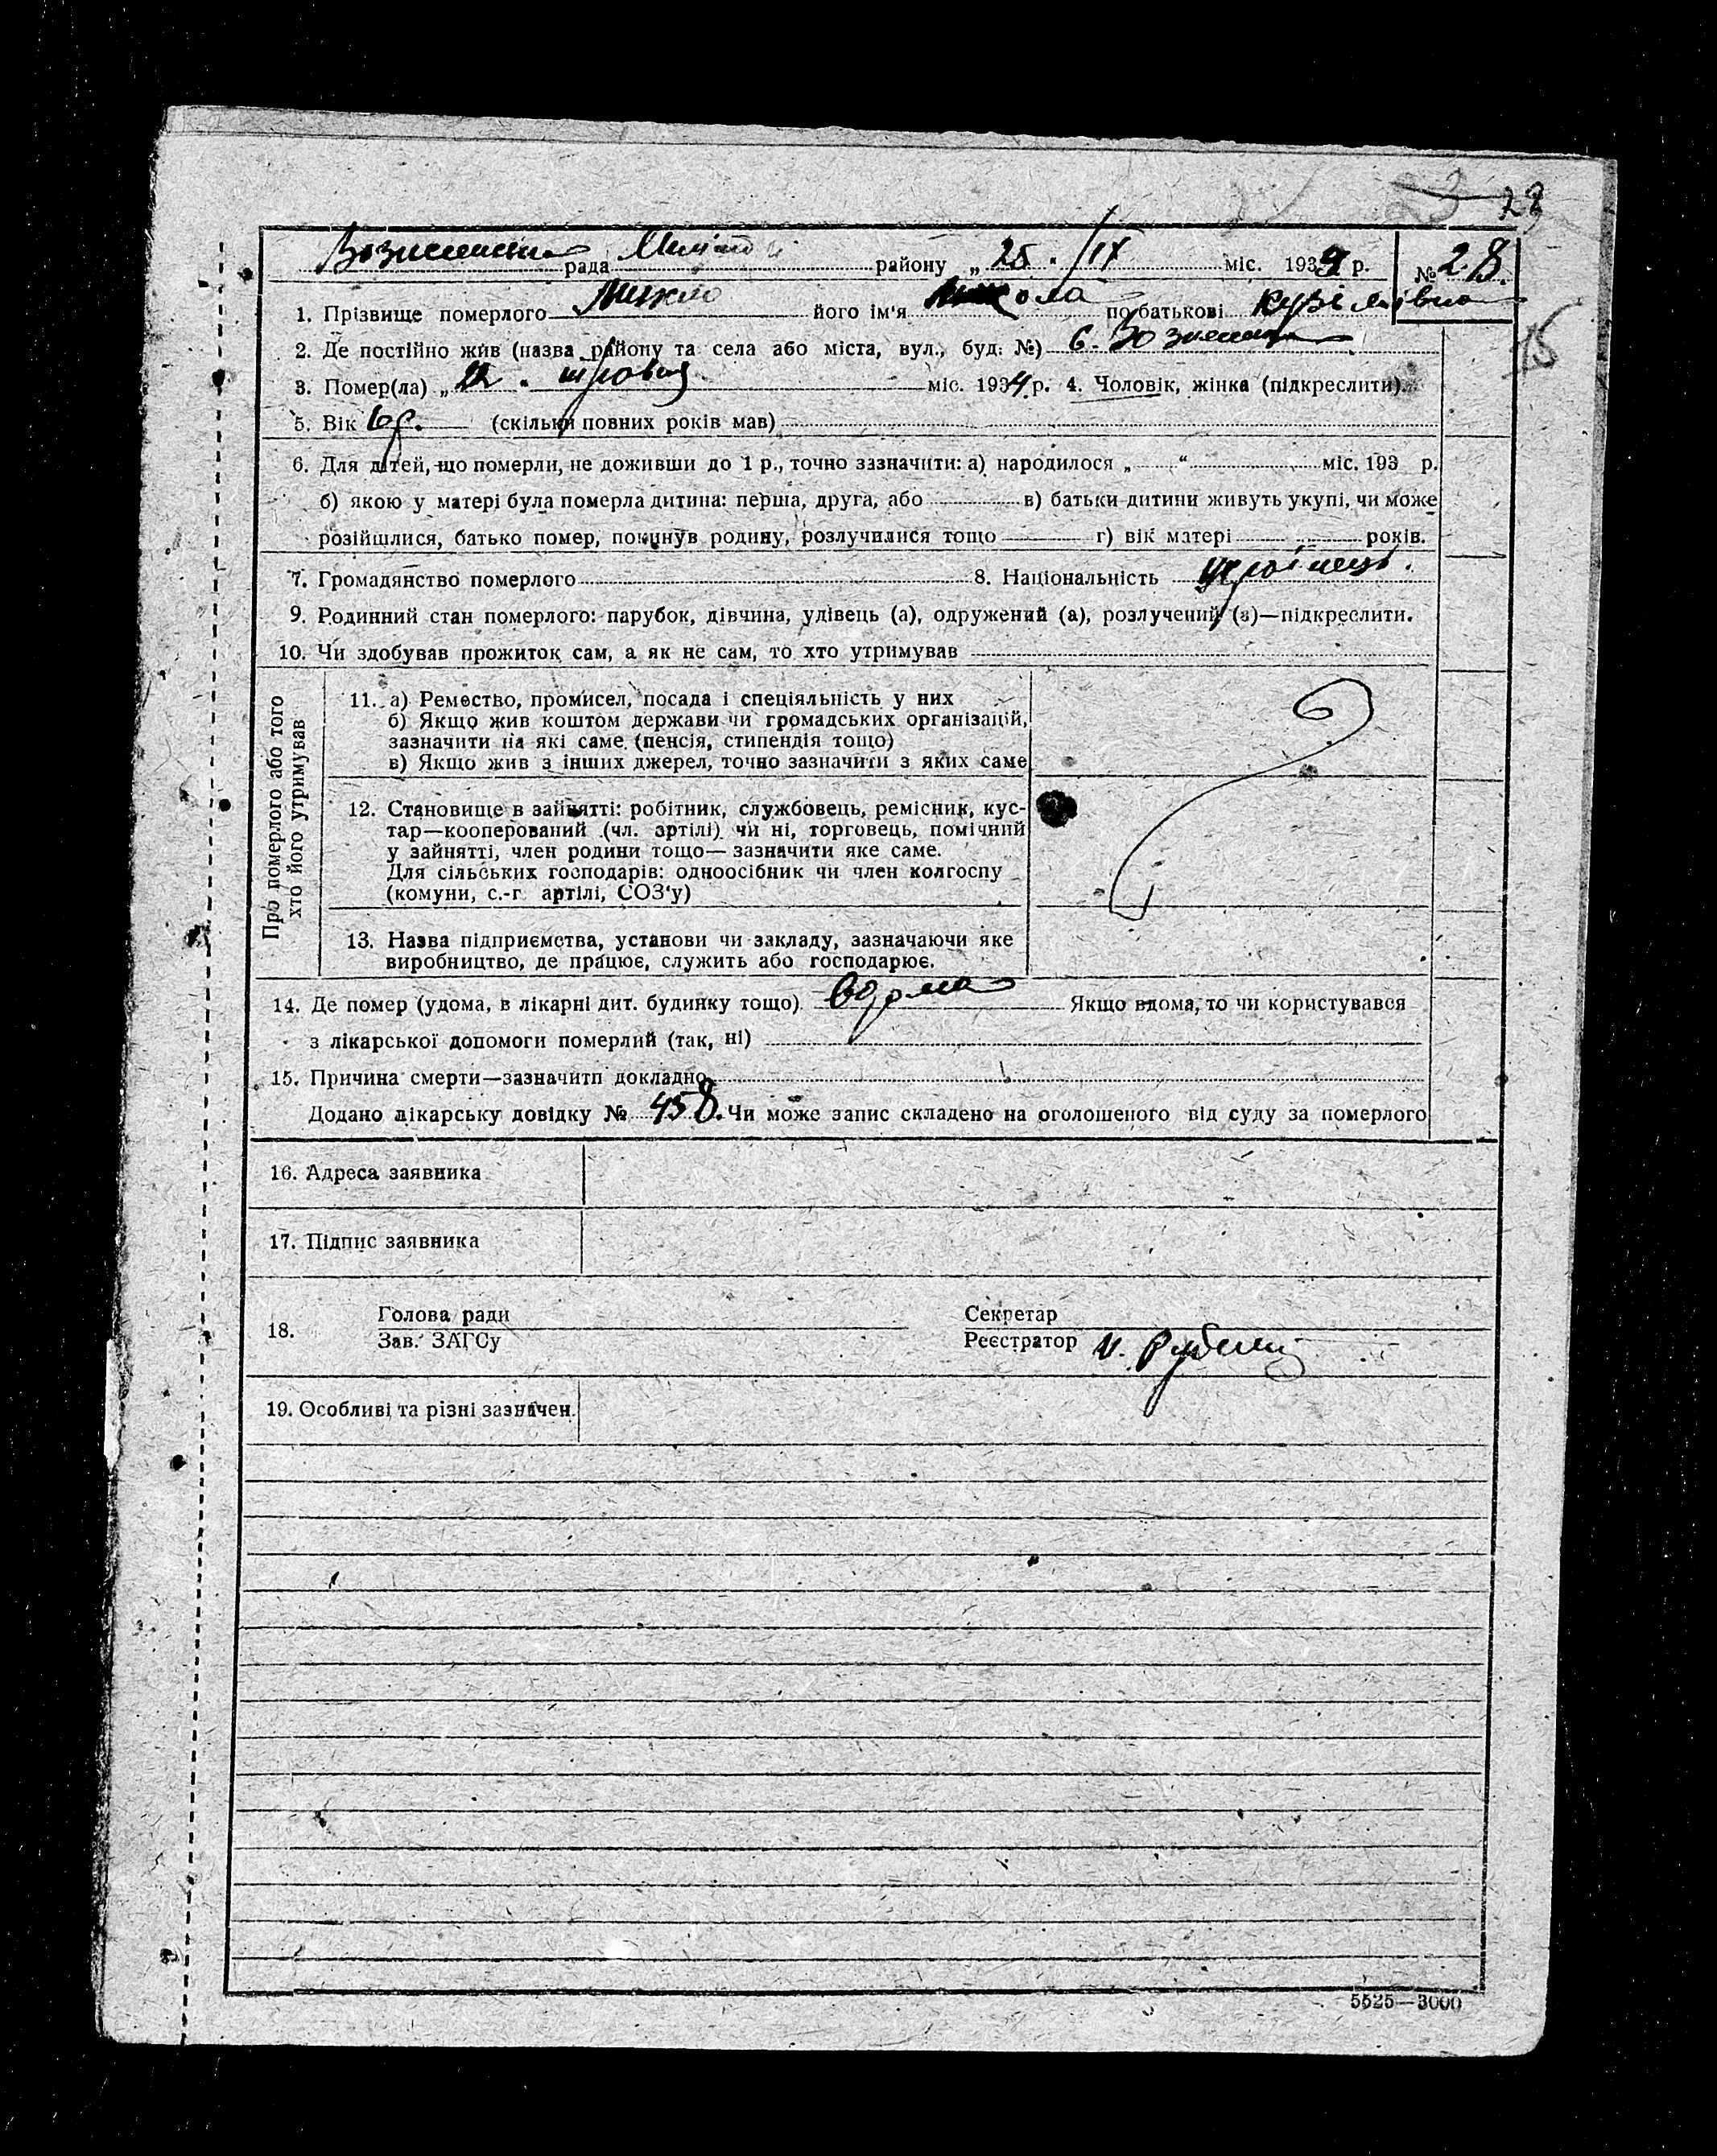 28
рада району „ 25 . /IX міс. 193 р. № 28.
1. Прізвище померлого його ім'я по батькові
15
2. Де постійно жив (назва району та села або міста, вул., буд. №) с.
3. Помер(ла) „ травня міс. 1934 р. 4. Чоловік, жінка (підкреслити).
5. Вік (скільки повних років мав)
6. Для дітей, що померли, не доживши до 1 р., точно зазначити: а) народилося „ “ міс. 193 р.
б) якою у матері була померла дитина: перша, друга, або в) батьки дитини живуть укупі, чи може
розійшлися, батько помер, покинув родину, розлучилися тощо г) вік матері років.
7. Громадянство померлого 8. Національність українець.
9. Родинний стан померлого: парубок, дівчина, удівець (а), одружений (а), розлучений (а)—підкреслити.
10. Чи здобував прожиток сам, а як не сам, то хто утримував
Про померлого або того
хто його утримував
11. а) Ремество, промисел, посада і спеціяльність у них
б) Якщо жив коштом держави чи громадських організацій,
зазначити на які саме (пенсія, стипендія тощо)
в) Якщо жив з інших джерел, точно зазначити з яких саме
12. Становище в зайнятті: робітник, службовець, ремісник, кус-
тар—кооперований (чл. артілі) чи ні, торговець, помічний
у зайнятті, член родини тощо—зазначити яке саме.
Для сільських господарів: одноосібник чи член колгоспу
(комуни, с.-г. артілі, СОЗ'у)
13. Назва підприємства, установи чи закладу, зазначаючи яке
виробництво, де працює, служить або господарює.
14. Де помер (удома, в лікарні дит. будинку тощо) вдома Якщо вдома, то чи користувався
з лікарської допомоги померлий (так, ні)
15. Причина смерти—зазначити докладно
Додано лікарську довідку № 458. Чи може запис складено на оголошеного від суду за померлого
16. Адреса заявника
17. Підпис заявника
18. Голова ради Секретар
Зав. ЗАГСу Реєстратор
19. Особливі та різні зазначен.
5525—3000